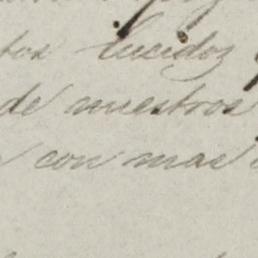 tos lucidoz
de nuestros
con mas